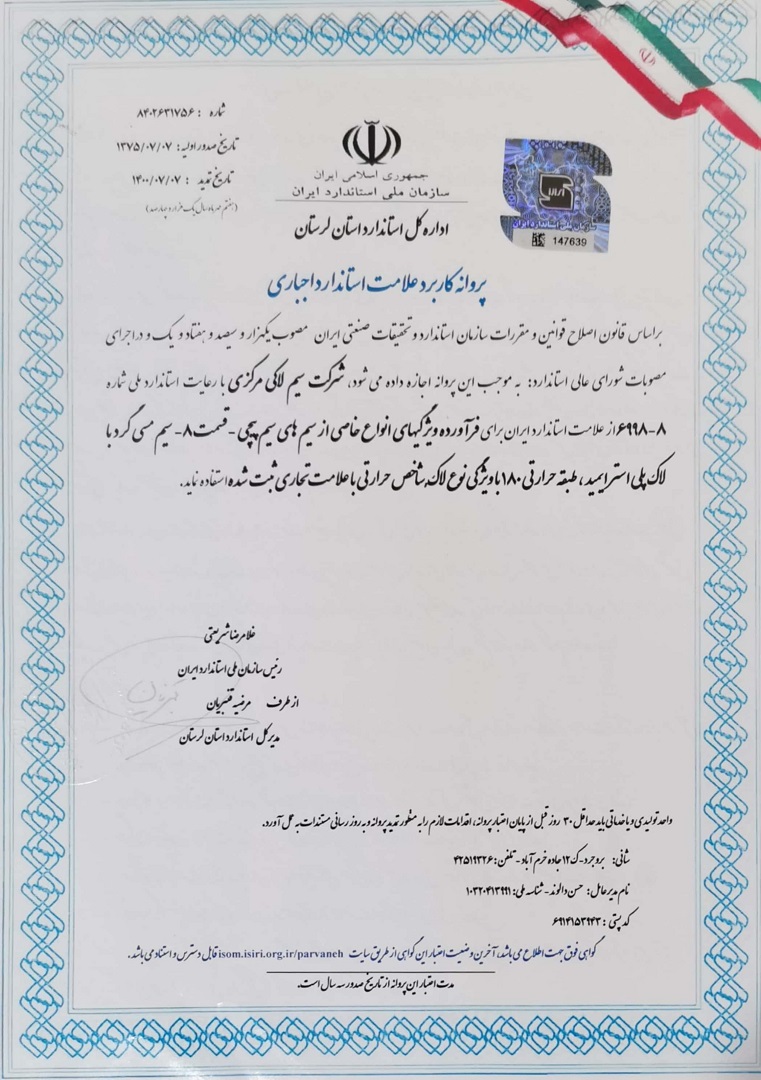 شماره : ۸۴۰۲۶۳۱۷۵۶
تاریخ صدور اولیه: ۱۳۷۵/۰۷/۰۷
تاریخ تمدید : ۱۴۰۰/۰۷/۰۷
(هفتم مهر ماه سال یک هزار و چهارصد)
جمهوری اسلامی ایران
سازمان ملی استاندارد ایران
اداره کل استاندارد استان لرستان
سازمان ملی استاندارد ایران
147639
پروانه کاربرد علامت استاندارد اجباری
براساس قانون اصلاح قوانین و مقررات سازمان استاندارد و تحقیقات صنعتی ایران مصوب یکهزار و سیصد و هفتاد و یک و در اجرای
مصوبات شورای عالی استاندارد: به موجب این پروانه اجازه داده می شود، شرکت سیم لاکی مرکزی با رعایت استاندارد ملی شماره
۶۹۹۸-۸ از علامت استاندارد ایران برای فرآورده ویژگیهای انواع خاصی از سیم های سیم پیچی - قسمت ۸- سیم مسی گرد با
لاک پلی استر ایمید، طبقه حرارتی ۱۸۰ با ویژگی نوع لاک، شاخص حرارتی با علامت تجاری ثبت شده استفاده نماید.
غلامرضا شریعتی
رئیس سازمان ملی استاندارد ایران
از طرف مرضیه قنبریان
مدیر کل استاندارد استان لرستان
واحد تولیدی و یا خدماتی باید حداقل ۳۰ روز قبل از پایان اعتبار پروانه، اقدامات لازم را به منظور تمدید پروانه و به روز رسانی مستندات به عمل آورد.
نشانی: بروجرد-ک ۱۲ جاده خرم آباد - تلفن: ۴۲۵۱۹۳۲۶
نام مدیر عامل: حسن دالوند - شناسه ملی: ۱۰۳۲۰۴۱۳۹۹۱
کد پستی : ۶۹۱۴۱۵۳۹۴۳
گواهی فوق جهت اطلاع می باشد، آخرین وضعیت اعتبار این گواهی از طریق سایت isom.isiri.org.ir/parvaneh قابل دسترس و استناد می باشد.
مدت اعتبار این پروانه از تاریخ صدور سه سال است.